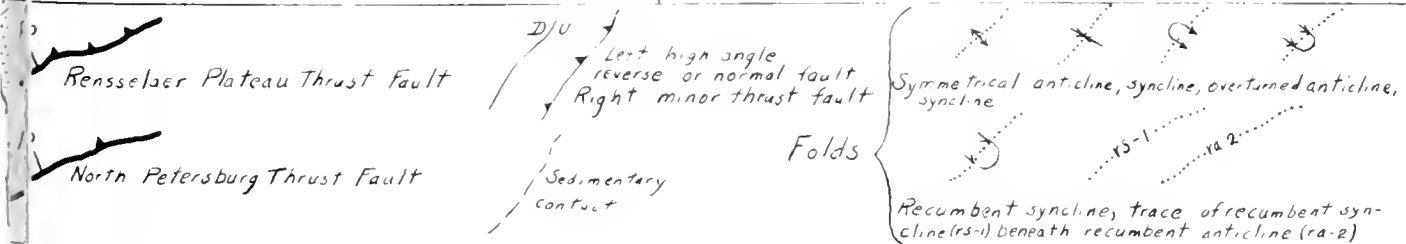 Rensselaer Plateau Thrust Fault
North Petersburg Thrust Fault
D/U
Left high angle
reverse or normal fault
Right minor thrust fault
Sedimentary
contact
Folds
Symmetrical anticline, syncline, overturned anticline,
syncline
r
rs-1
ra 2
Recumbent syncline, trace of recumbent syn-
cline (rs-1) beneath recumbent anticline (ra-2)